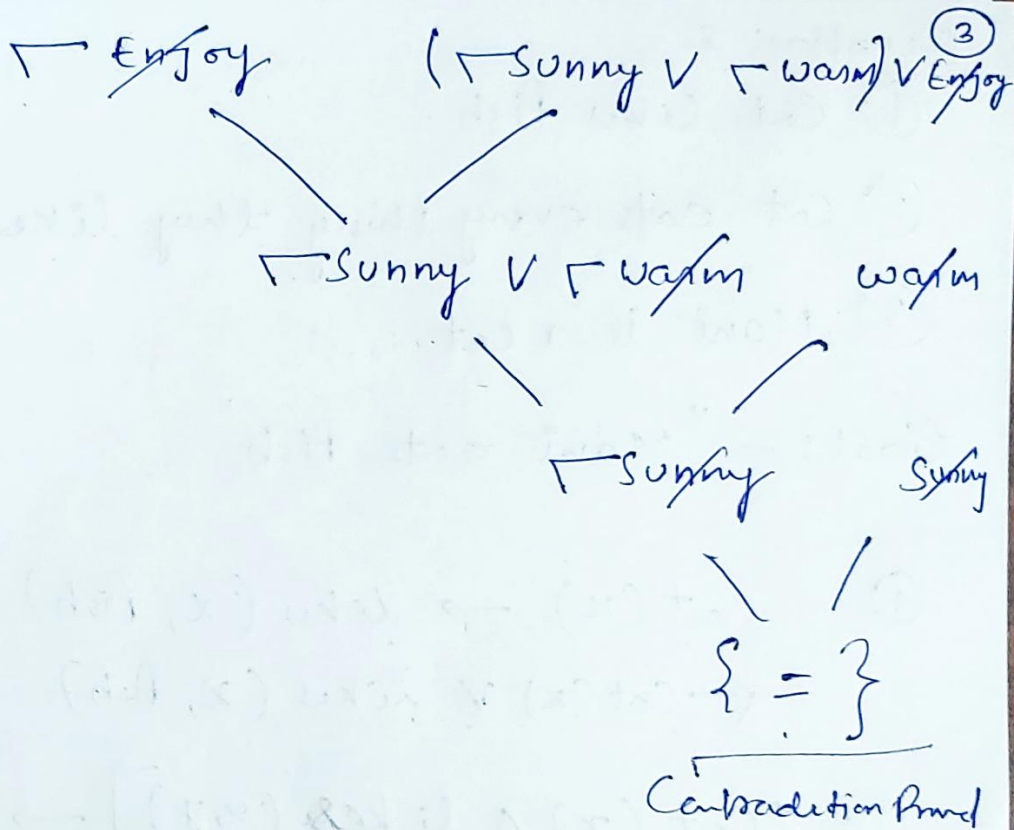 3
¬ Enjoy (¬Sunny V ¬ warm) V Enjoy
¬Sunny V ¬ warm warm
¬Sunny Sunny
{ = }
Contradiction Proved